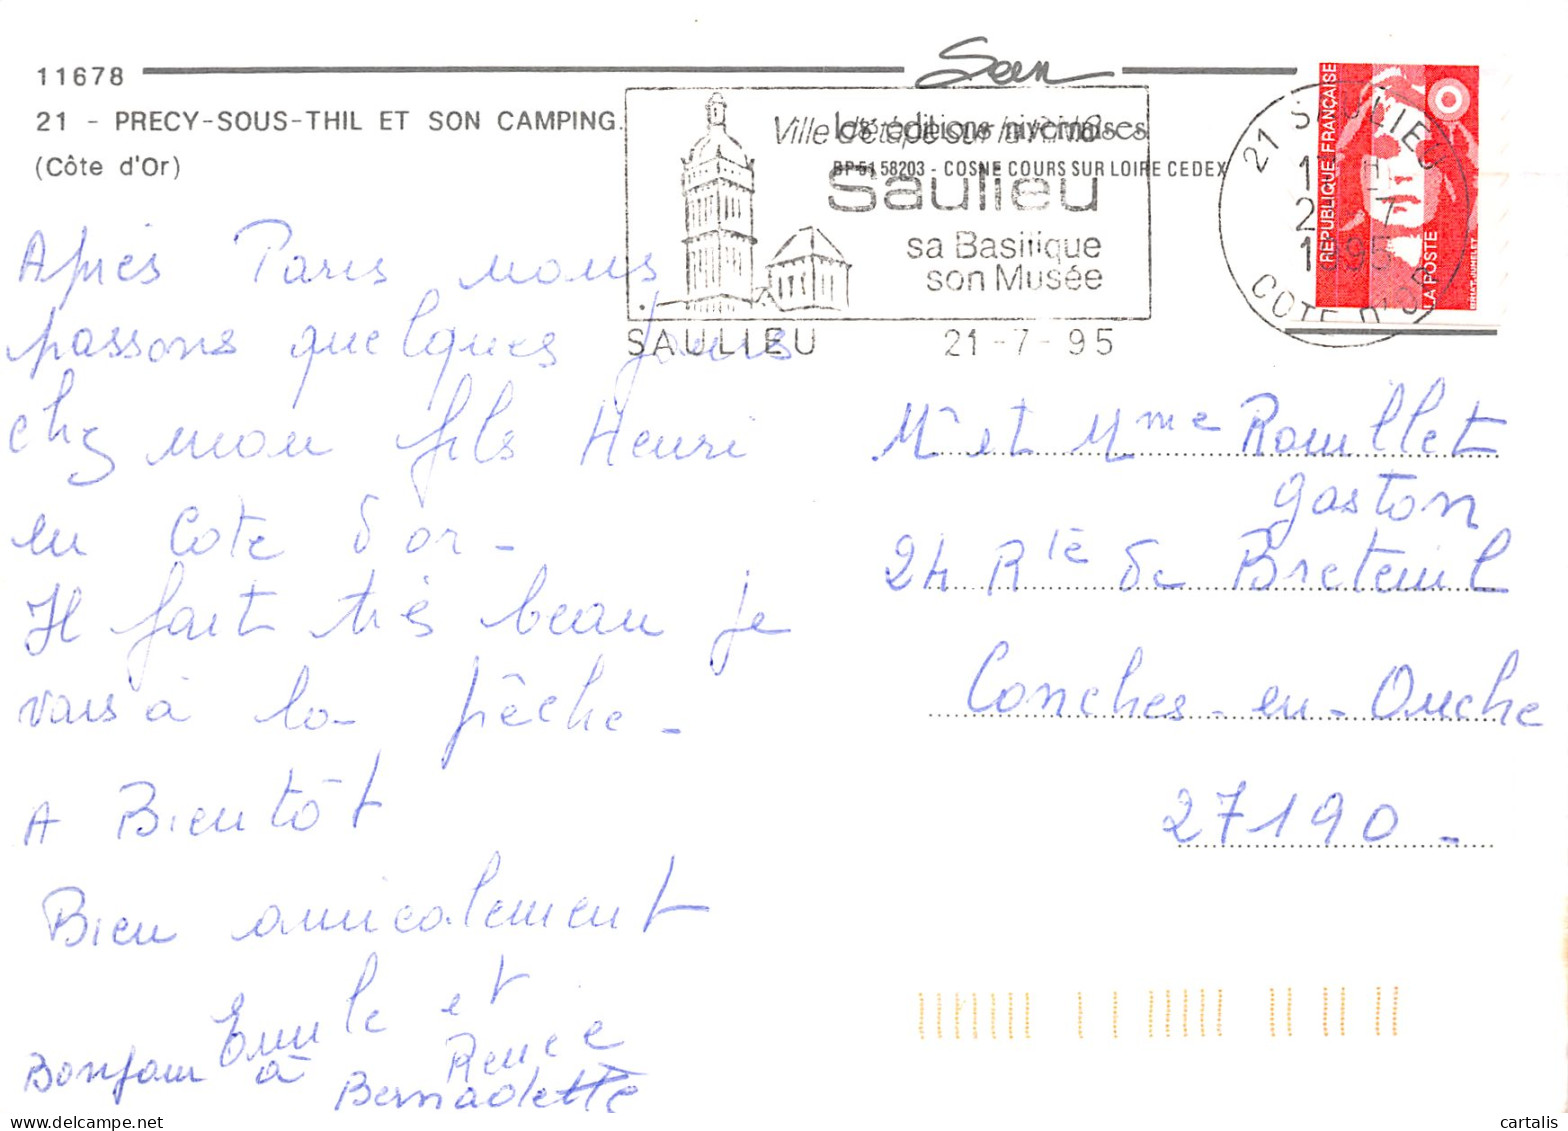 11678
21 - PRECY-SOUS-THIL ET SON CAMPING.
(Côte d'Or)
les éditions nivernaises
BP 51 58203 - COSNE COURS SUR LOIRE CEDEX
Saulieu
sa Basilique
son Musée
SAULIEU 21-7-95
21 SAULIEU
21-7
1995
COTE D'OR
REPUBLIQUE FRANÇAISE
LA POSTE
BRIAT-JUMELET
Après Paris nous
passons quelques jours
chez mon fils Henri
en Cote d'or -
Il fait très beau je
vais à la pêche -
A Bientôt
Bien amicalement
Emile et
Renée
Bonjour à Bernadette
Mr et Mme Rouillet
gaston
24 Rte de Breteuil
Conches-en-Ouche
27190 -
cartalis